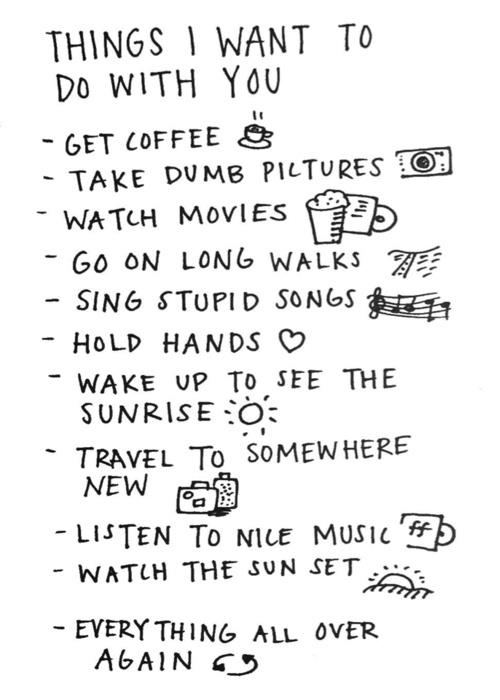 THINGS I WANT TO
DO WITH YOU
- GET COFFEE
- TAKE DUMB PICTURES
- WATCH MOVIES
- GO ON LONG WALKS
- SING STUPID SONGS
- HOLD HANDS ♡
- WAKE UP TO SEE THE
SUNRISE
- TRAVEL TO SOMEWHERE
NEW
- LISTEN TO NICE MUSIC ff
- WATCH THE SUN SET
- EVERYTHING ALL OVER
AGAIN